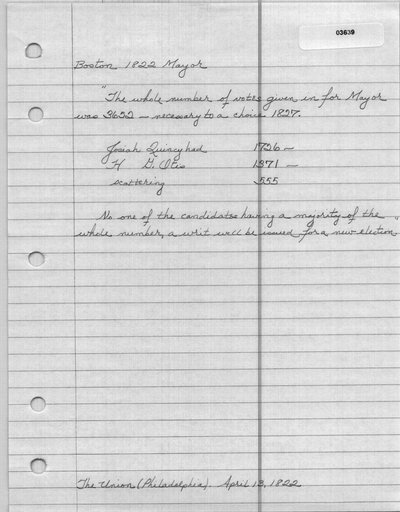 03639
Boston 1822 Mayor
"The whole number of votes given in for Mayor
was 3652 — necessary to a choice 1827.
Josiah Quincy had 1726 —
H G. Otis 1371 —
scattering 555
No one of the candidates having a majority of the
whole number, a writ will be issued for a new election."
The Union (Philadelphia). April 13, 1822